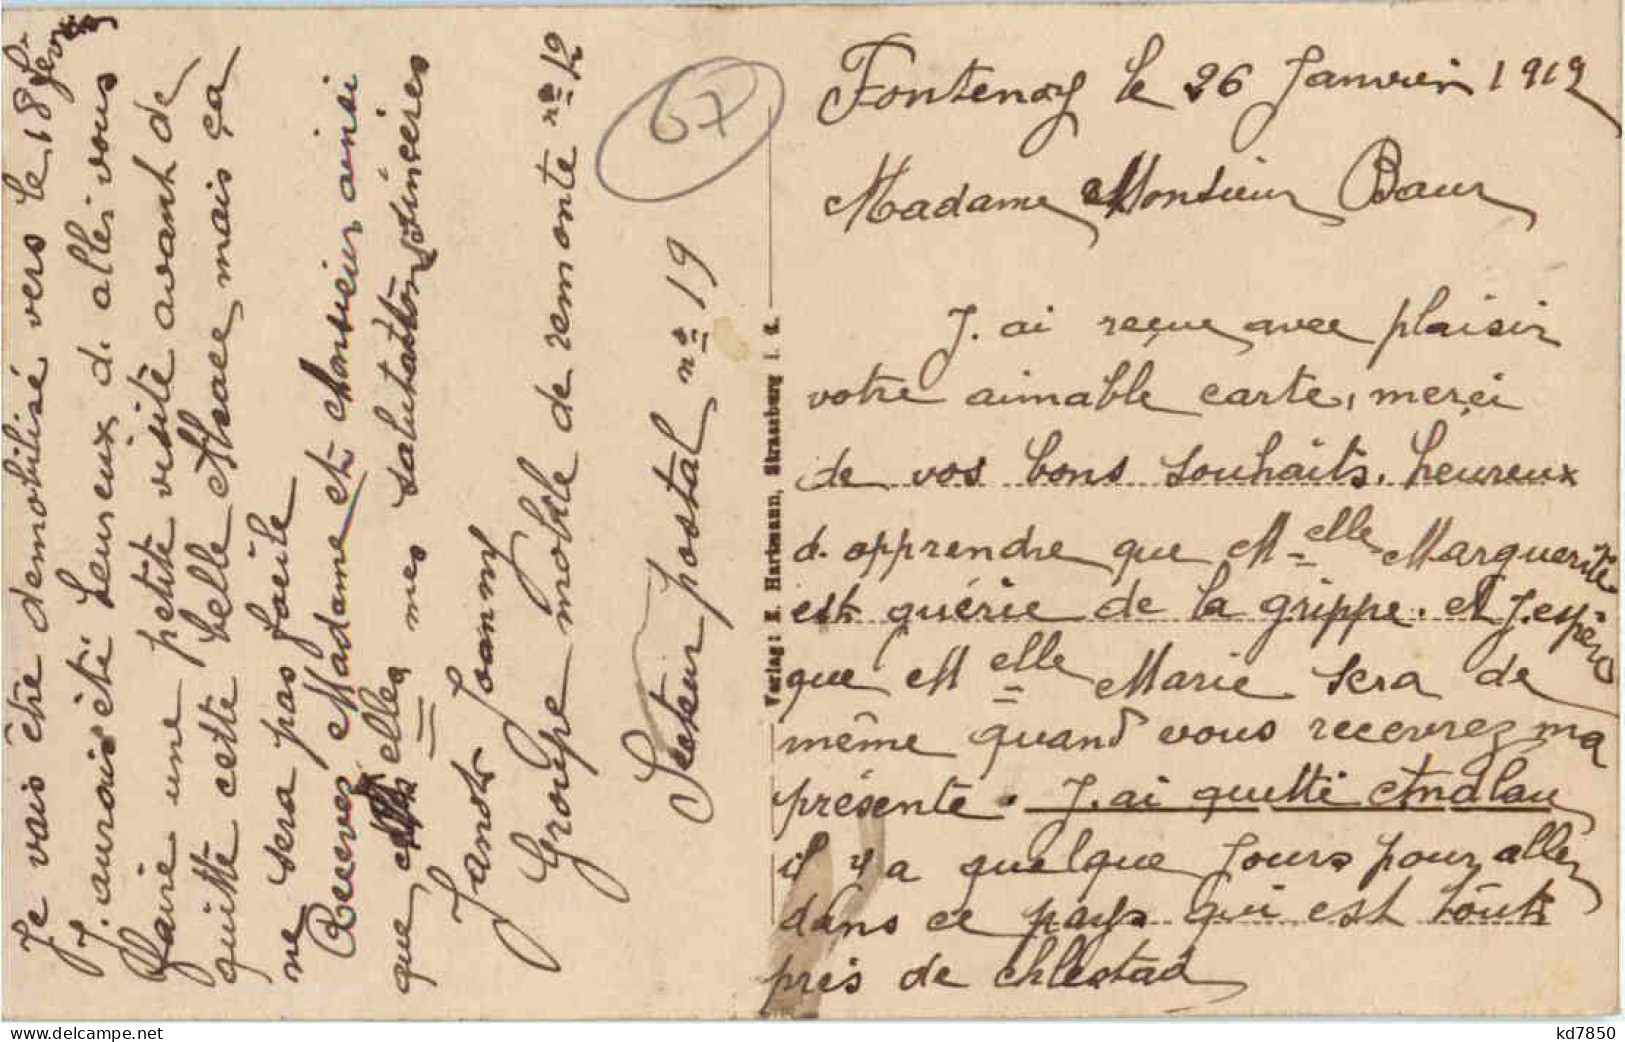 Fontenoy le 26 Janvier 1919
Madame Monsieur Baur
J. ai reçue avec plaisir
votre aimable carte, merçi
de vos bons souhaits. heureux
d. apprendre que M elle Marguerite
est guérie de la grippe. et J. espère
que M elle Marie sera de
même quand vous recevrez ma
présente. J. ai quetté Andlau
il y a quelque Jours pour aller
dans ce pays qui est toût
près de chlestad
Je vais être demobilisé vers le 18 fevrier
J. aurais été heureux d. aller vous
faire une petite visite avant de
quitté cette belle Alsace mais ça
ne sera pas facile
Recevez Madame et Monsieur ainsi
que elles mes salutations sinçères
Jandt Joanny
Groupe mobile de remonte n° 12
Secteur postal n° 19
67
Verlag: E. Hartmann, Strassburg i. E.
kd7850